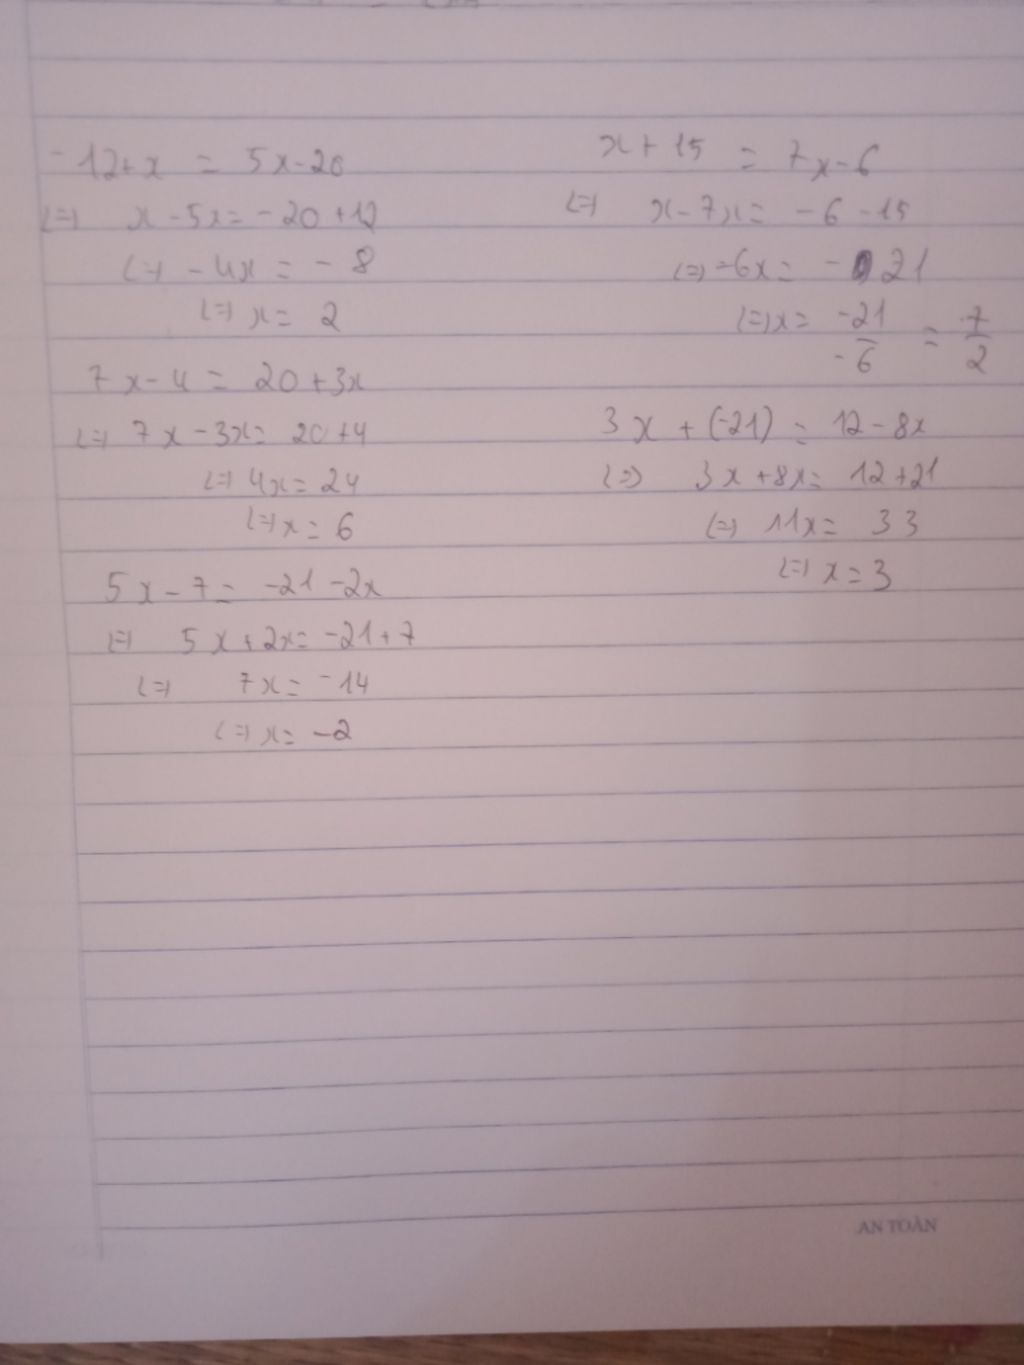 -12+x = 5x-20
<=> x-5x= -20+12
<=> -4x = -8
<=> x= 2
7x-4 = 20+3x
<=> 7x-3x= 20+4
<=> 4x= 24
<=> x= 6
5x-7= -21-2x
<=> 5x+2x= -21+7
<=> 7x= -14
<=> x= -2
x+15 = 7x-6
<=> x-7x= -6-15
<=> -6x= -21
<=> x= -21/-6 = 7/2
3x+(-21) = 12-8x
<=> 3x+8x= 12+21
<=> 11x= 33
<=> x=3
AN TOÀN